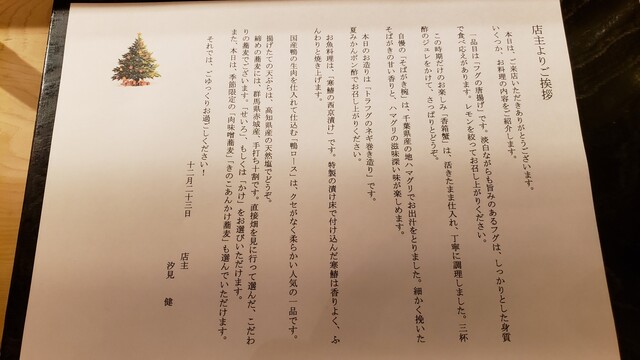 店主よりご挨拶
本日は、ご来店いただきありがとうございます。
いくつか、お料理の内容をご紹介します。
一品目は「フグの唐揚げ」です。淡白ながらも旨みのあるフグは、しっかりとした身質
で食べ応えがあります。レモンを絞ってお召し上がりください。
この時期だけのお楽しみ「香箱蟹」は、活きたまま仕入れ、丁寧に調理しました。三杯
酢のジュレをかけて、さっぱりとどうぞ。
自慢の「そばがき椀」は、千葉県産の地ハマグリでお出汁をとりました。細かく挽いた
そばがきの甘い香りと、ハマグリの滋味深い味が楽しめます。
本日のお造りは「トラフグのネギ巻き造り」です。
夏みかんポン酢でお召し上がりください。
お魚料理は、「寒鰆の西京漬け」です。特製の漬け床で付け込んだ寒鰆は香りよく、ふ
んわりと焼き上げます。
国産鴨の生肉を仕入れて仕込む「鴨ロース」は、クセがなく柔らかい人気の一品です。
揚げたての天ぷらは、高知県産の天然塩でどうぞ。
締めの蕎麦には、群馬県赤城産、手打ち十割です。直接畑を見に行って選んだ、こだわ
りの蕎麦でございます。「せいろ」もしくは「かけ」をお選びいただけます。
また、本日は、季節限定の「肉味噌蕎麦」「きのこあんかけ蕎麦」も選んでいただけます。
それでは、ごゆっくりお過ごしください！
十二月二十三日
店主
汐見 健